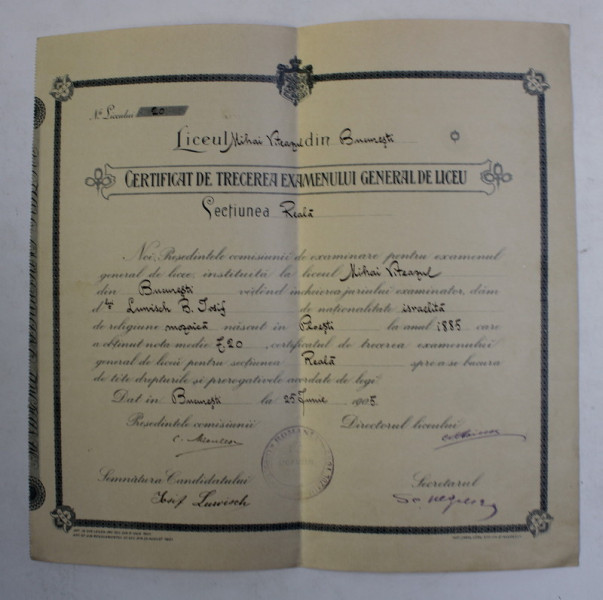 No Liceului 20
Liceul Mihai Viteazul din Bucuresti
CERTIFICAT DE TRECEREA EXAMENULUI GENERAL DE LICEU
Secțiunea Reală
Noi, Președintele comisiunii de examinare pentru examenul
general de liceu, instituită la liceul Mihai Viteazul
din București văzînd încheierea juriului examinator, dăm
dlui B. Iosif de naționalitate israelită
de religiune mozaică născut în Ploești la anul 1885 care
a obținut nota medie 7,20, certificatul de trecerea examenului
general de liceu pentru secțiunea Reală spre a se bucura
de tóte drepturile și prerogativele acordate de legi.
Dat în București la 25 Iunie 1905.
Președintele comisiunii
Directorul liceului
Semnătura Candidatului
Secretarul
Iosif